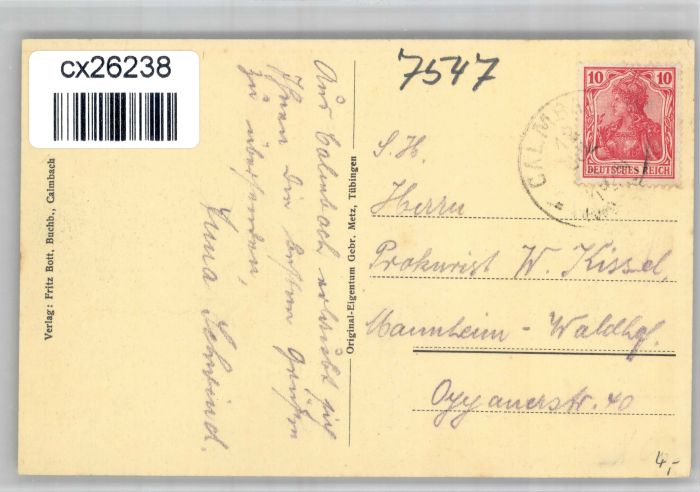 cx26238
7547
10 10
DEUTSCHES REICH
CALMBACH
Verlag: Fritz Bott, Buchh., Calmbach
Original-Eigentum Gebr. Metz, Tübingen
Aus Calmbach erlaubt sich
Ihnen die besten Grüßen
zu übersenden,
Anna Schwind.
S. H.
Herrn
Prokurist W. Kissel,
Mannheim - Waldhof.
Oppauerstr. 40
4,-